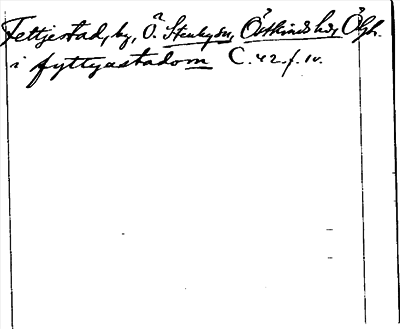 Fettjestad, by, Ö. Stenby sn, Östkinds hd, Ögl.
i fyttyastadom C. 42. f. 10.